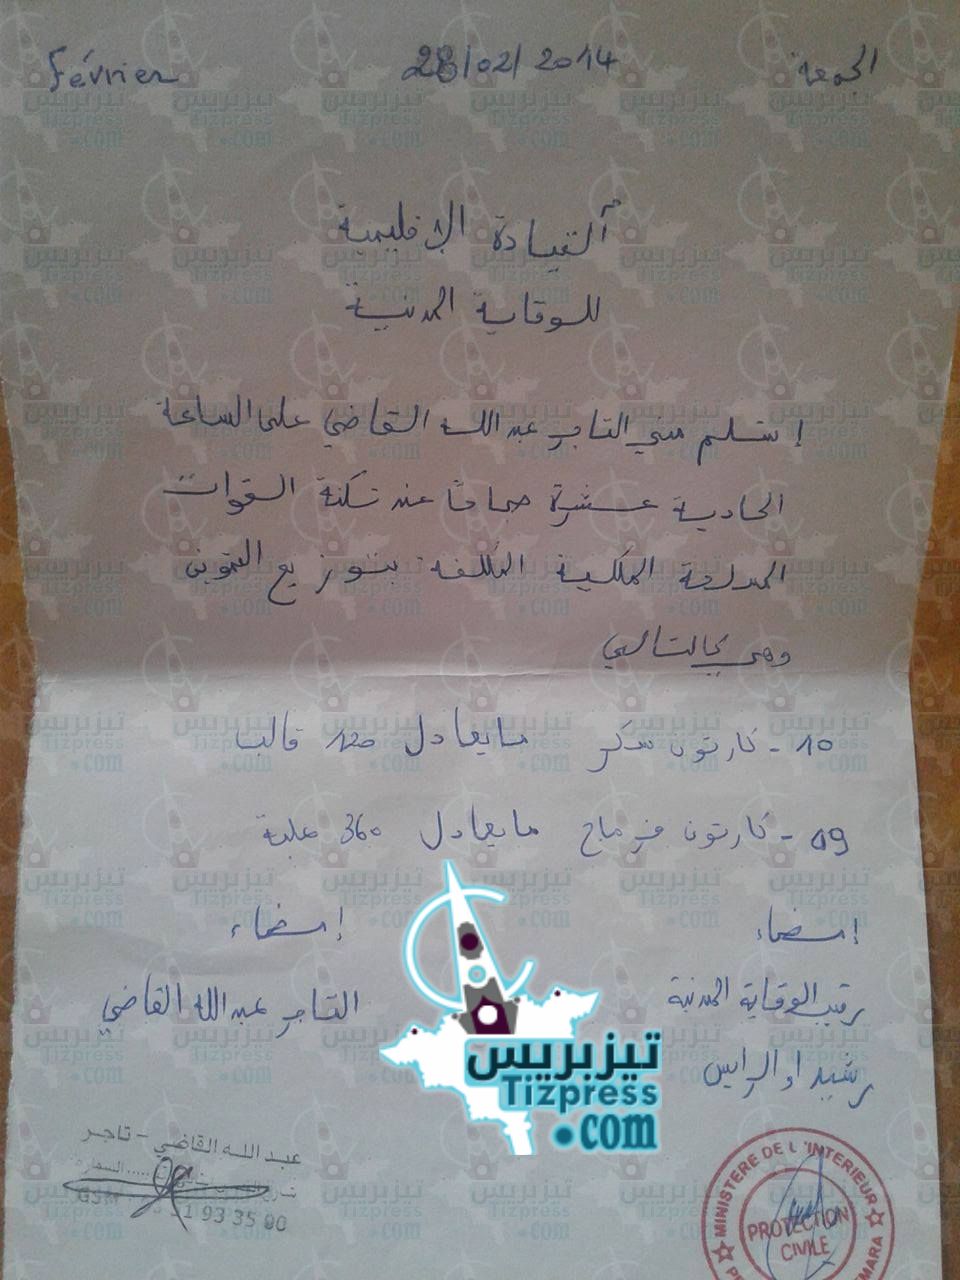 الجمعة 28/02/2014 Février
القيادة الإقليمية
للوقاية المدنية
إستلم مني التاجر عبد الله القاضي على الساعة
الحادية عشرة صباحًا عند تكنة القوات
المسلحة الملكية المكلفة بتوزيع التموين
وهي كالتالي
10 - كارتون سكر مايعادل 120 قالب
09 - كارتون فرماج مايعادل 360 علبة
إمضاء
رقيب الوقاية المدنية
رشيد او الرايس
إمضاء
التاجر عبد الله القاضي
عبد الله القاضي - تاجر
السمارة
GSM
61 93 35 90
MINISTERE DE L'INTERIEUR
PROTECTION
CIVILE
تيزبريس
Tizpress
.com